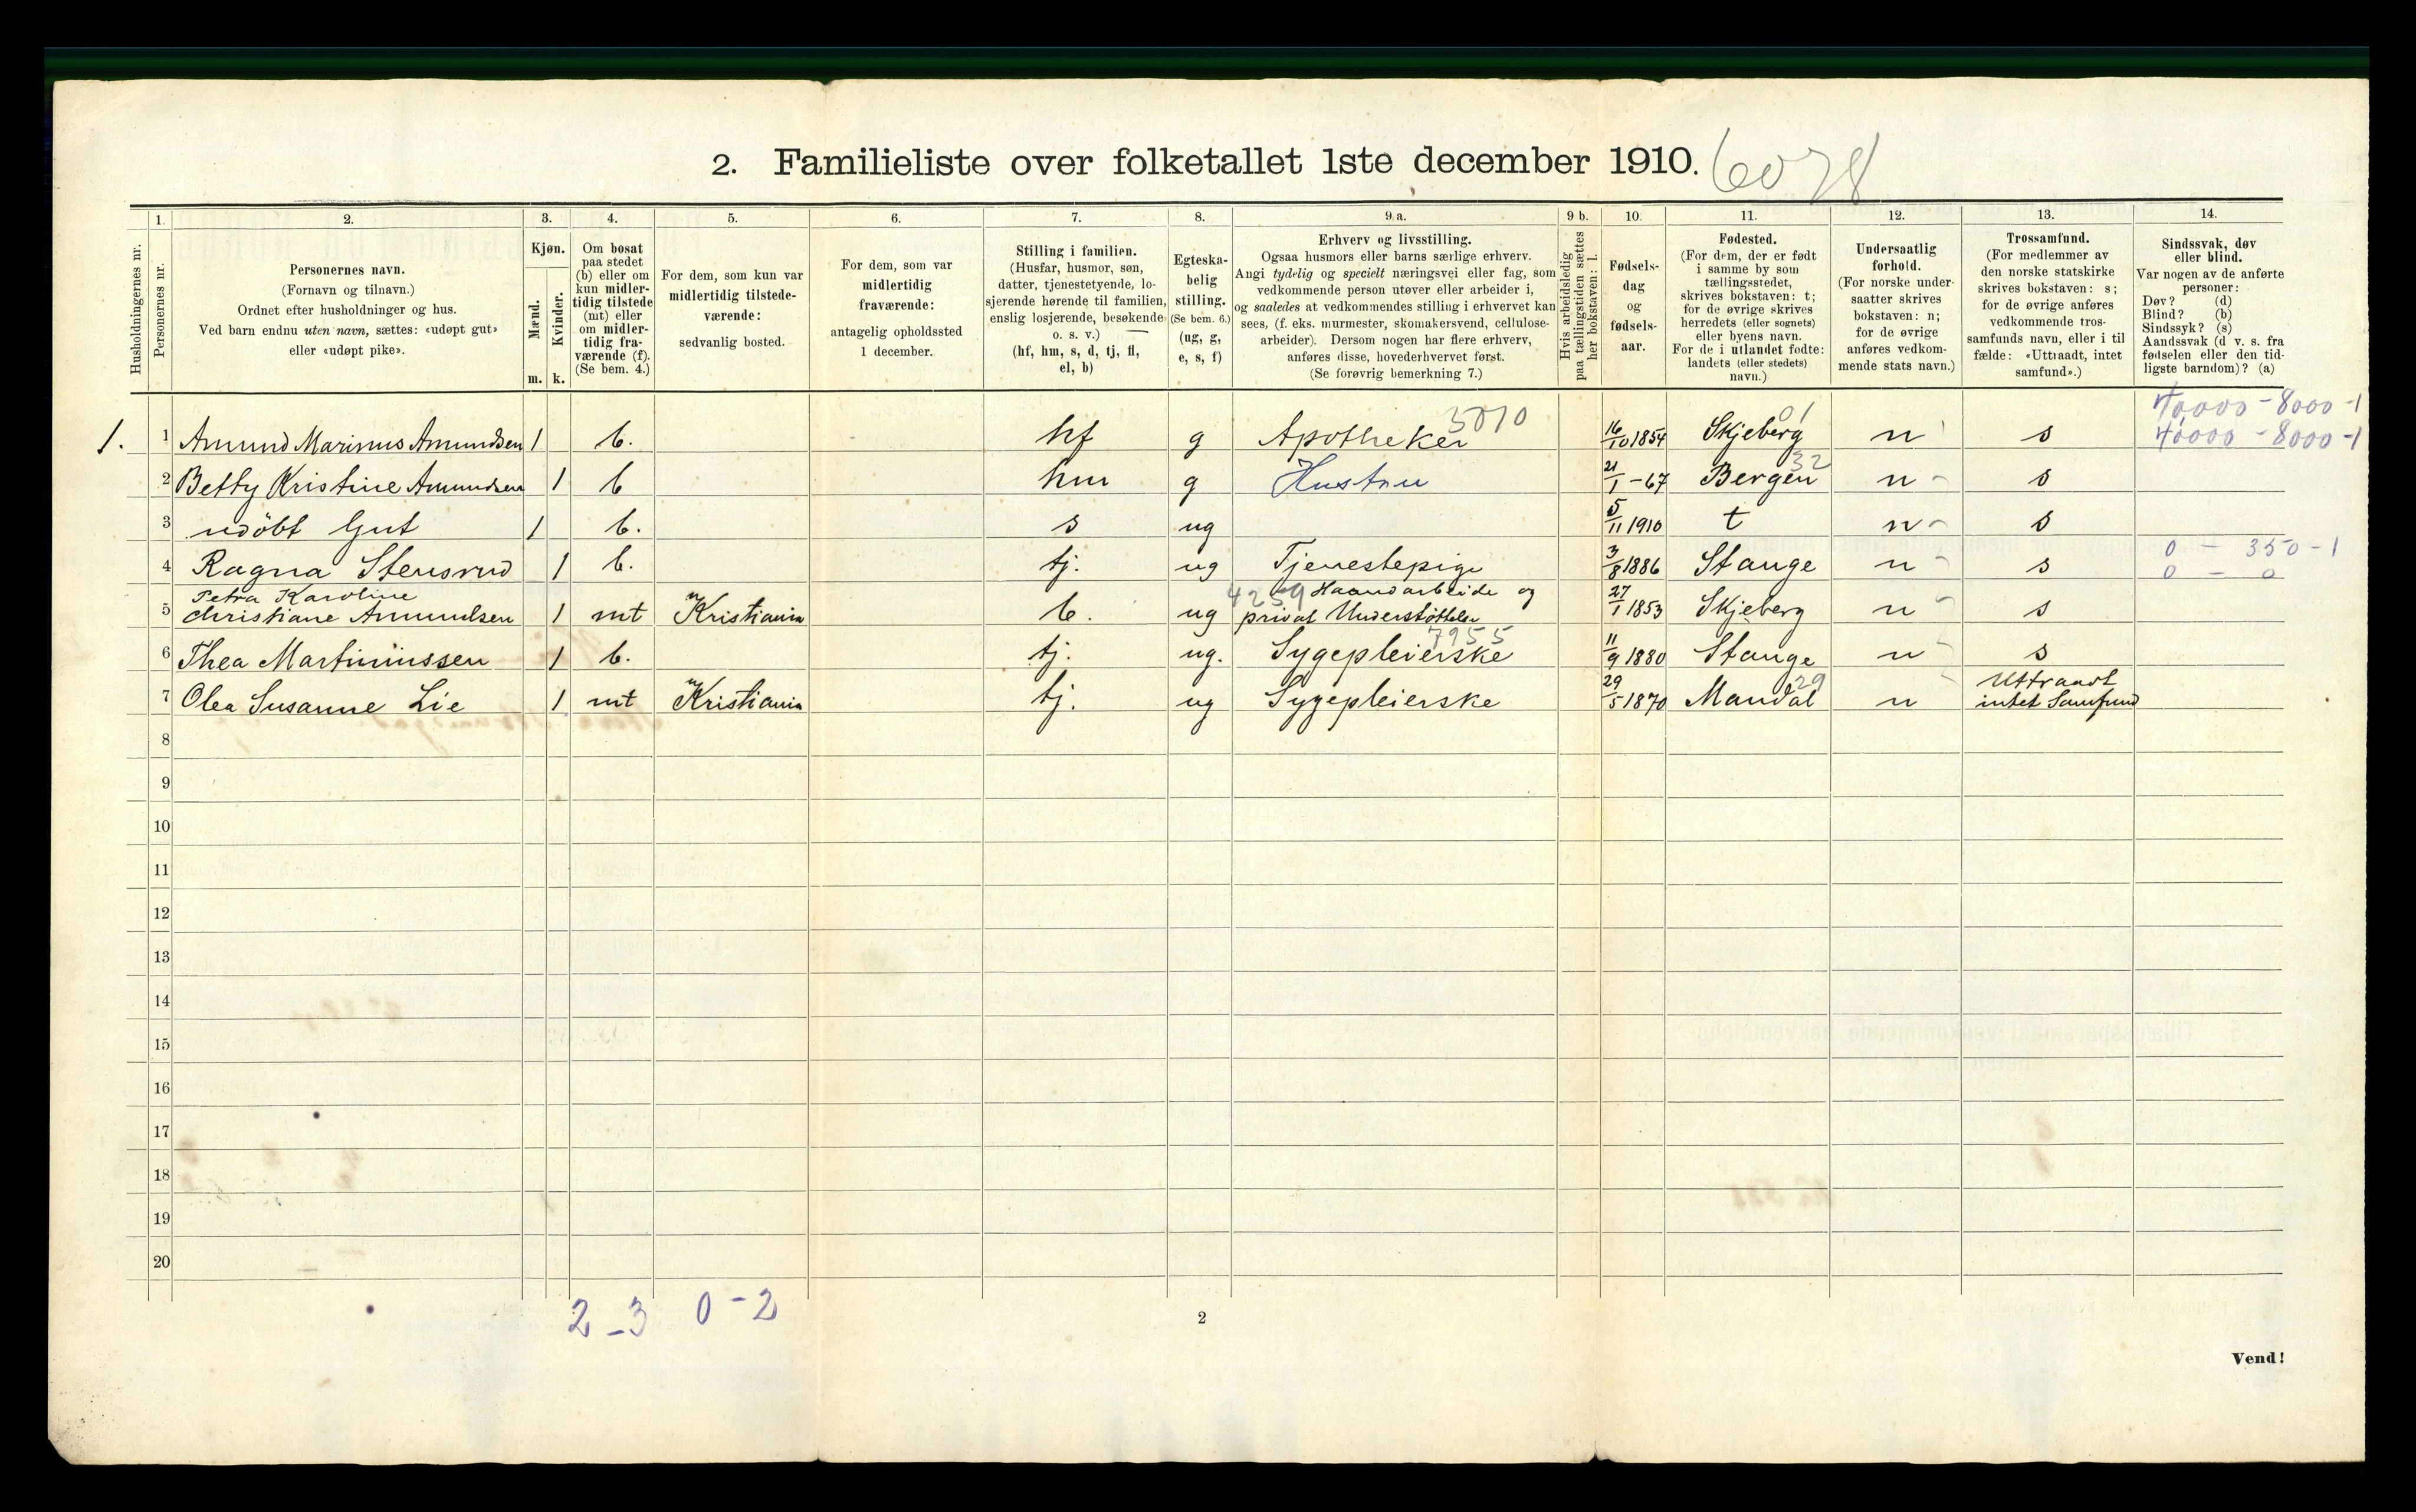 2. Familieliste over folketallet 1ste december 1910. 6078
1. 2. 3. 4. 5. 6. 7. 8. 9 a. 9 b. 10. 11. 12. 13. 14.
Husholdningernes nr.
Personernes nr.
Personernes navn.
(Fornavn og tilnavn.)
Ordnet efter husholdninger og hus.
Ved barn endnu uten navn, sættes: «udøpt gut»
eller «udøpt pike».
Kjøn.
Mænd.
Kvinder.
m. k.
Om bosat
paa stedet
(b) eller om
kun midler-
tidig tilstede
(mt) eller
om midler-
tidig fra-
værende (f).
(Se bem. 4.)
For dem, som kun var
midlertidig tilstede-
værende:
sedvanlig bosted.
For dem, som var
midlertidig
fraværende:
antagelig opholdssted
1 december.
Stilling i familien.
(Husfar, husmor, søn,
datter, tjenestetyende, lo-
sjerende hørende til familien,
enslig losjerende, besøkende
o. s. v.)
(hf, hm, s, d, tj, fl,
el, b)
Egteska-
belig
stilling.
(Se bem. 6.)
(ug, g,
e, s, f)
Erhverv og livsstilling.
Ogsaa husmors eller barns særlige erhverv.
Angi tydelig og specielt næringsvei eller fag, som
vedkommende person utøver eller arbeider i,
og saaledes at vedkommendes stilling i erhvervet kan
sees, (f. eks. murmester, skomakersvend, cellulose-
arbeider). Dersom nogen har flere erhverv,
anføres disse, hovederhvervet først.
(Se forøvrig bemerkning 7.)
Hvis arbeidsledig
paa tællingstiden sættes
her bokstaven: l.
Fødsels-
dag
og
fødsels-
aar.
Fødested.
(For dem, der er født
i samme by som
tællingsstedet,
skrives bokstaven: t;
for de øvrige skrives
herredets (eller sognets)
eller byens navn.
For de i utlandet fødte:
landets (eller stedets)
navn.)
Undersaatlig
forhold.
(For norske under-
saatter skrives
bokstaven: n;
for de øvrige
anføres vedkom-
mende stats navn.)
Trossamfund.
(For medlemmer av
den norske statskirke
skrives bokstaven: s;
for de øvrige anføres
vedkommende tros-
samfunds navn, eller i til
fælde: «Uttraadt, intet
samfund».)
Sindssvak, døv
eller blind.
Var nogen av de anførte
personer:
Døv? (d)
Blind? (b)
Sindssyk? (s)
Aandssvak (d v. s. fra
fødselen eller den tid-
ligste barndom)? (a)
3010 01 40000 - 8000 - 1
1. 1 Amund Marinus Amundsen 1 b. hf g Apotheker 16/10 1854 Skjeberg n s 40000 - 8000 - 1
2 Betty Kristine Amundsen 1 b hm g Hustru 21/1 - 67 Bergen 32 n - s
3 udöbt Gut 1 b. s ug 5/11 1910 t n - s
0 - 350 - 1
4 Ragna Stensrud 1 b. tj. ug Tjenestepige 3/8 1886 Stange n - s 0 - 0
Petra Karoline 4259 Haandarbeide og
5 Christiane Amundsen 1 mt Kristiania b. ug privat Understöttelse 27/1 1853 Skjeberg n - s
7955
6 Thea Martiniussen 1 b. tj. ug. Sygepleierske 11/9 1880 Stange n - s
29 Uttraadt
7 Olea Susanne Lie 1 mt Kristiania tj. ug Sygepleierske 29/5 1870 Mandal n intet Samfund
8
9
10
11
12
13
14
15
16
17
18
19
20
2 - 3 0 - 2
2
Vend!